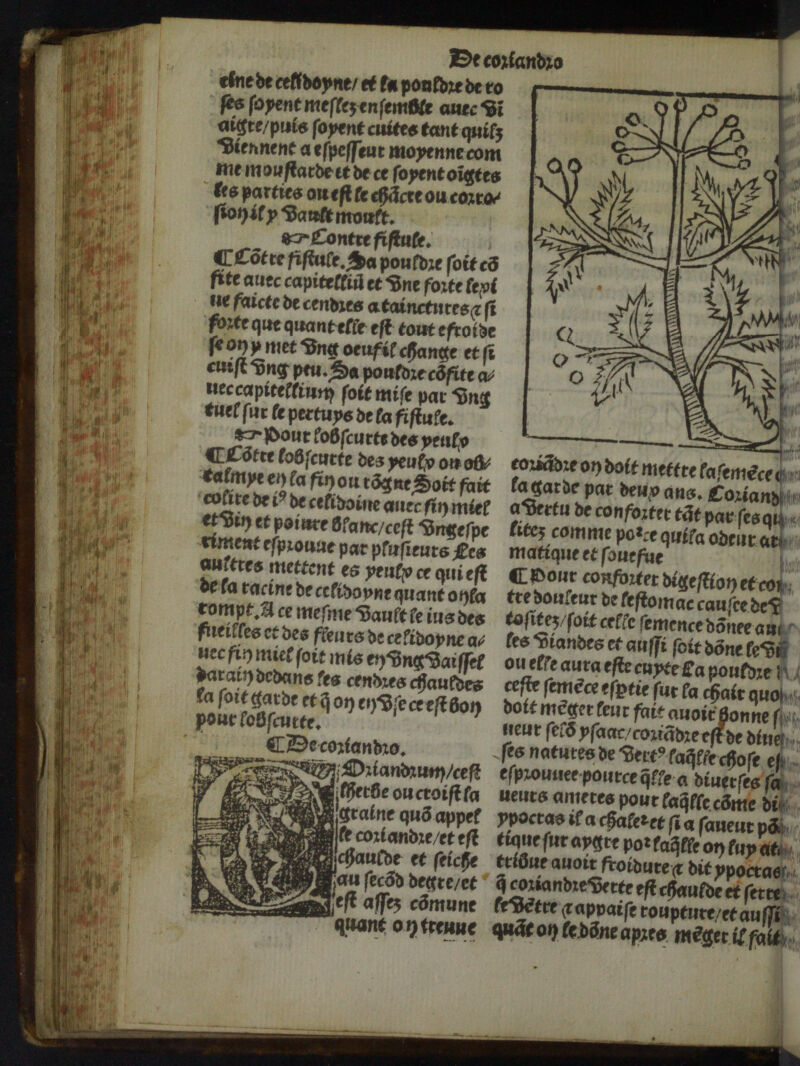 De coriandro
cine de celidoyne/ et la pouldre de ro
ses soyent meslez ensemble auec vi
aigre/puis soyent cuites tant quilz
viennent a espesseur moyenne com
me moustarde et de ce soyent oīgtes
les parties ou est le chācre ou corro/
sion il y vault moult.
☞ Contre fistule.
¶ Cōtre fistule. Sa pouldre soit cō
fite auec capitelliū et vne forte lexi
ue faicte de cendres a tainctures ⁊ si
forte que quant elle est tout efroide
se on y met vng oeuf il change et si
cuist vng peu. Sa pouldre cōfite a/
uec capitellium soit mise par vng
tuel sur le pertuys de la fistule.
☞ Pour lobscurte des yeulx
¶ Cōtre lobscurte des yeulx ou ob/
talmye en la fin ou rōgne Soit fait
colire de iꝰ de celidoine auec fin miel
et vin et poiure blanc/cest vngespe
riment esprouue par plusieurs Les
aultres mettent es yeulx ce qui est
de la racine de celidoyne quant on la
rompt. A ce mesme vault le ius des
fueilles et des fleurs de celidoyne a/
uec fin miel soit mis en vng vaissel
darain dedans les cendres chauldes
la soit garde et q̄ on en vse ce est bon
pour lobscurte.
¶ De coriandro.
COriandrum/cest
lherbe ou croist la
graine quō appel
le coriandre/et est
chaulde et seiche
au secōd degre/et
est assez cōmune
quant on treuue
coriādre on doit mettre la semēce
la garde par deux ans. Coriand
a vertu de conforter tāt par ses qu
litez comme poᵘce quil a odeur ar
matique et souefue
¶ Pour conforter digestion et con
tre douleur de lestomac causee de
tositez/soit celle semence dōnee au
les viandes et aussi soit dōne le vi
ou elle aura este cuyte La pouldre
ceste semēce esptie sur la chair quo
doit mēger leur fait auoir bonne s
ueur selō ysaac/coriādre est de diue
ses natures de vertꝰ laq̄lle chose es
esprouuee pource q̄lle a diuerses sa
ueurs ameres pour laq̄lle cōme di
ypocras il a chaleᵘ et si a saueur pō
tique sur aygre poᵘ laq̄lle on luy at
tribue auoir froidure ⁊ dit ypocras
q̄ coriandre verte est chaulde et serre
le vētre ⁊ appaise roupture/et aussi
quāt on le dōne apres mēger il fait